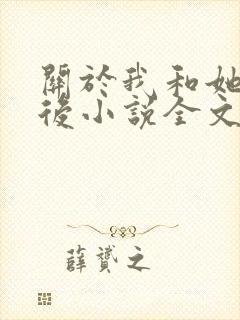 關於我和她
後小說全文
薛贇之